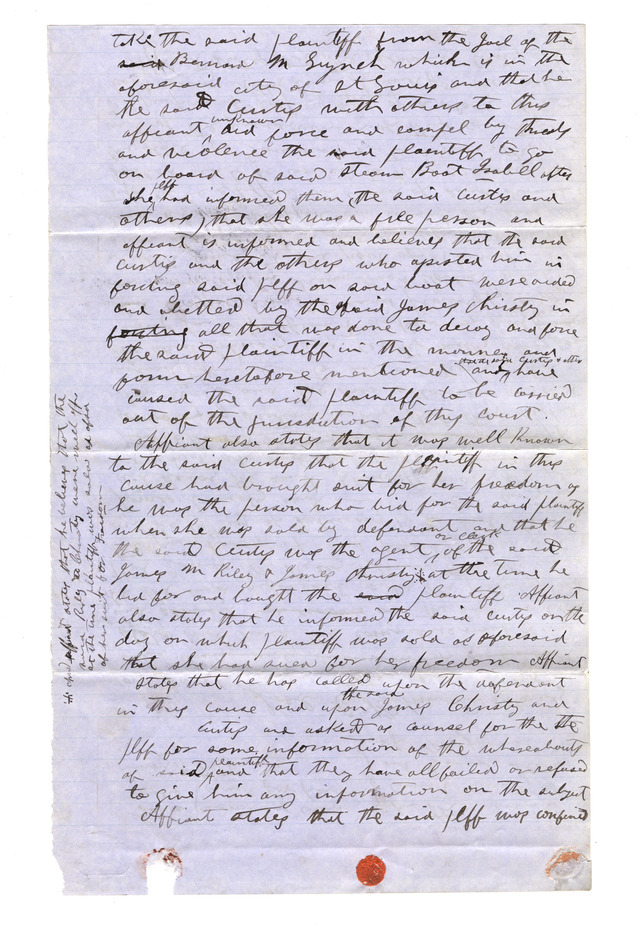 take the said plaintiff from the Jail of the
said Bernard M Lynch which is in the
aforesaid city of St Louis and that he
the said Curtis with others to this
affiant unknown did force and compel by threats
and violence the said plaintiff to go
on board of said steam Boat Isabell after
she plff had informed them, the said Curtis and
others, that she was a free person and
affiant is informed and believes that the said
Curtis and the others who assisted him in
forcing said plff on said boat were aided
and abetted by the said James Christy in
forcing all that was done to decoy and force
the said plaintiff in the manner and
form heretofore mentioned and that said Curtis & others have
caused the said plaintiff to be carried
out of the jurisdiction of this court.
Affiant also states that it was well known
to the said Curtis that the plaintiff in this
cause had brought suit for her freedom as
he was the person who bid for the said plaintiff
when she was sold by defendant and that he
the said Curtis was the agent or Clerk of the said
James M Riley & James Christy at the time he
bid for and bought the said plaintiff Affiant
also states that he informed the said Curtis on the
day on which plaintiff was sold as aforesaid
that she had sued for her freedom Affiant
states that he has called upon the defendant
in this cause and upon the said James Christy and
Curtis and asked as counsel for the the
plff for some information of the whereabouts
of said plaintiff and that they have all failed or refused
to give him any information on the subject
Affiant states that the said plff was confined
affiant states that he believes that the
said Riley & Christy were well
at the time plaintiff was sold as afsd
of her suit for Freedom